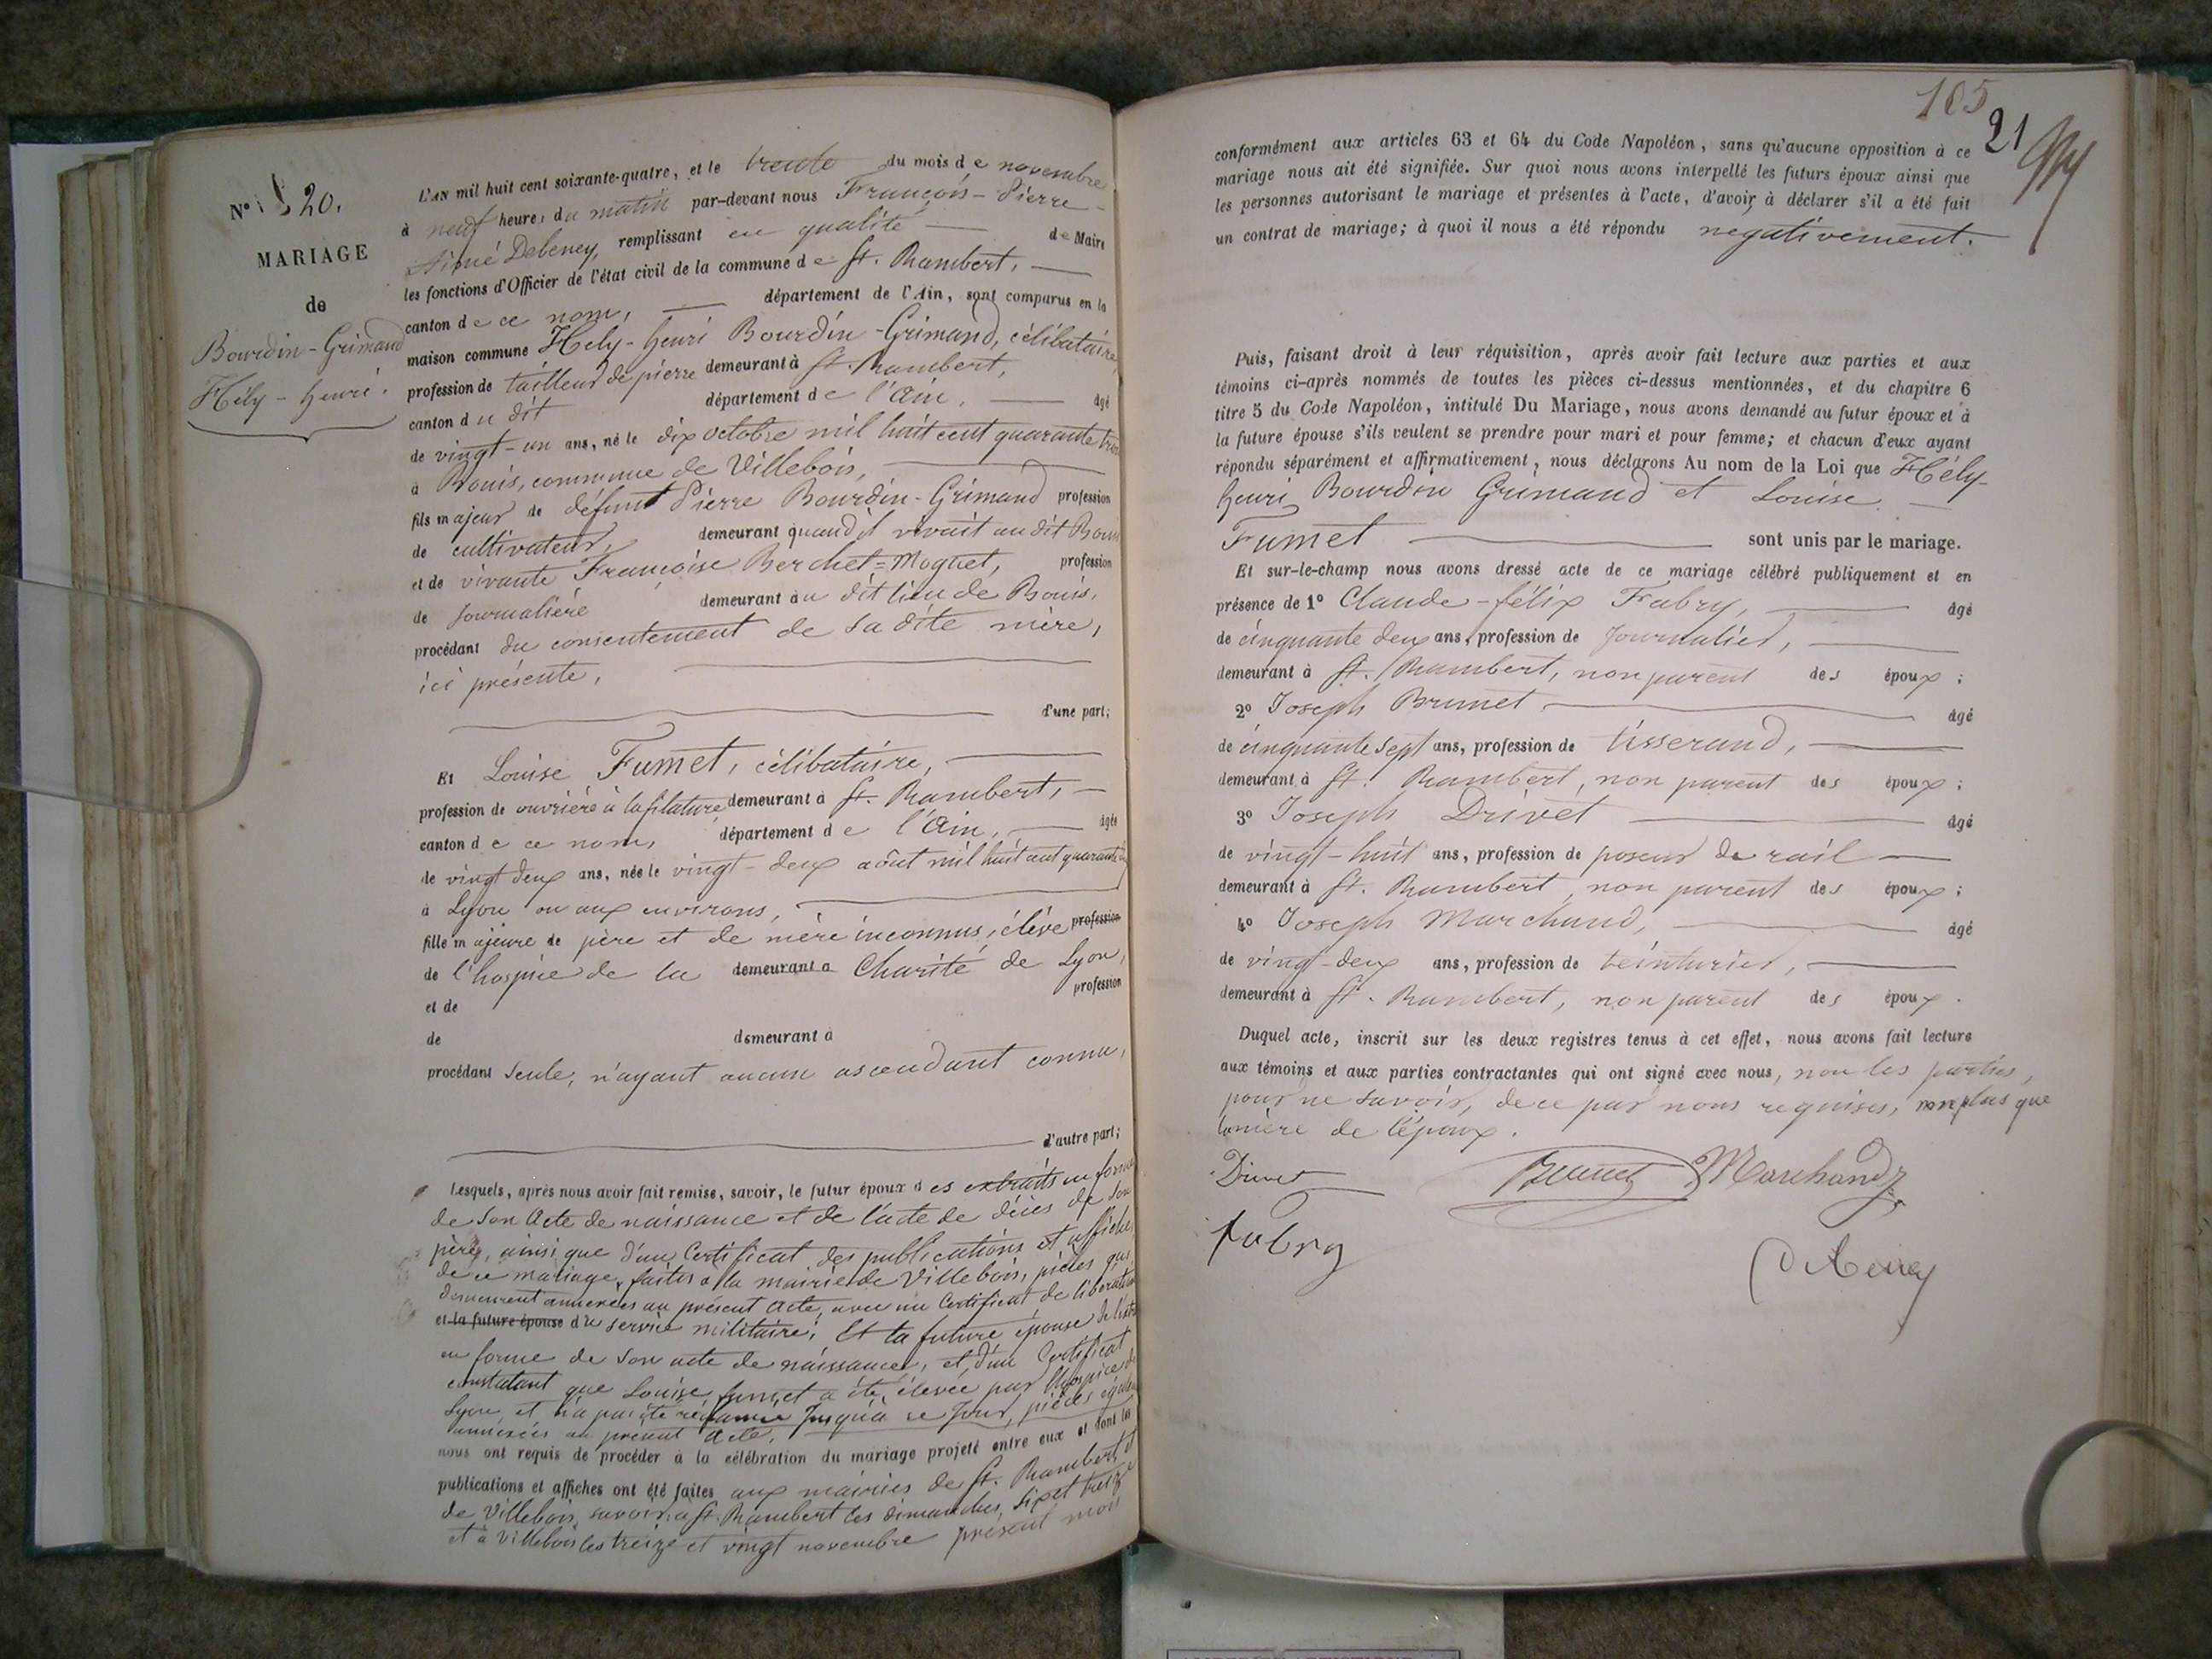 N° 20.
MARIAGE
de
Bourdin-Grimand
Hély-henri.
L'AN mil huit cent soixante-quatre, et le trente du mois de novembre
à neuf heures du matin par-devant nous François-Pierre-
Aimé Debeney, remplissant en qualité de Maire
les fonctions d'Officier de l'état civil de la commune de St. Rambert,
canton de ce nom, département de l'Ain, sont comparus en la
maison commune Hely-henri Bourdin-Grimand, célibataire,
profession de tailleur de pierre demeurant à St. Rambert,
canton du dit département de l'Ain, âgé
de vingt-un ans, né le dix octobre mil huit cent quarante trois
à Bouis, commune de Villebois,
fils majeur de défunt Pierre Bourdin-Grimand profession
de cultivateur, demeurant quand il vivait au dit Bouis
et de vivante Françoise Berchet=Moguet, profession
de journalière demeurant au dit lieu de Bouis,
procédant du consentement de sa dite mère,
ici présente,
d'une part;
Et Louise Fumet, célibataire,
profession de ouvrière à la filature demeurant à St. Rambert,
canton de ce nom, département de l'Ain, âgée
de vingt deux ans, née le vingt-deux août mil huit cent quarante
à Lyon ou aux environs,
fille majeure de père et de mère inconnus, élève profession
de l'hospice de la demeurant à Charité de Lyon,
et de profession
de demeurant à
procédant seule, n'ayant aucun ascendant connu,
d'autre part;
Lesquels, après nous avoir fait remise, savoir, le futur époux des extraits en forme
de son acte de naissance et de l'acte de décès de son
père, ainsi que d'un Certificat des publications et affiches
de ce mariage, faites à la mairie de Villebois, pièces qui
demeurent annexées au présent acte, avec un Certificat de libération
et la future épouse du service militaire; Et la future épouse de l'extrait
en forme de son acte de naissance, et d'un Certificat
constatant que Louise fumet a été élevée par l'hospice de
Lyon, et n'a pas été réclamée jusqu'à ce jour, pièces
annexées au présent acte.
nous ont requis de procéder à la célébration du mariage projeté entre eux et dont les
publications et affiches ont été faites aux mairies de St. Rambert et
de Villebois, savoir à St. Rambert les dimanches, six et treize
et à Villebois les treize et vingt novembre présent mois
105
21
conformément aux articles 63 et 64 du Code Napoléon, sans qu'aucune opposition à ce
mariage nous ait été signifiée. Sur quoi nous avons interpellé les futurs époux ainsi que
les personnes autorisant le mariage et présentes à l'acte, d'avoir à déclarer s'il a été fait
un contrat de mariage; à quoi il nous a été répondu négativement.
Puis, faisant droit à leur réquisition, après avoir fait lecture aux parties et aux
témoins ci-après nommés de toutes les pièces ci-dessus mentionnées, et du chapitre 6
titre 5 du Code Napoléon, intitulé Du Mariage, nous avons demandé au futur époux et à
la future épouse s'ils veulent se prendre pour mari et pour femme; et chacun d'eux ayant
répondu séparément et affirmativement, nous déclarons Au nom de la Loi que Hély-
henri Bourdin Grimand et Louise
Fumet sont unis par le mariage.
Et sur-le-champ nous avons dressé acte de ce mariage célébré publiquement et en
présence de 1° Claude-félix Fabry, âgé
de cinquante deux ans, profession de journalier,
demeurant à St. Rambert, non parent des époux;
2° Joseph Brunet âgé
de cinquante sept ans, profession de tisserand,
demeurant à St. Rambert, non parent des époux;
3° Joseph Drivet âgé
de vingt-huit ans, profession de poseur de rail
demeurant à St. Rambert, non parent des époux;
4° Joseph Marchand, âgé
de vingt-deux ans, profession de teinturier,
demeurant à St. Rambert, non parent des époux.
Duquel acte, inscrit sur les deux registres tenus à cet effet, nous avons fait lecture
aux témoins et aux parties contractantes qui ont signé avec nous, non les parties,
pour ne savoir, de ce par nous requises, non plus que
la mère de l'époux.
Drivet Brunet Marchand
fabry
Debeney